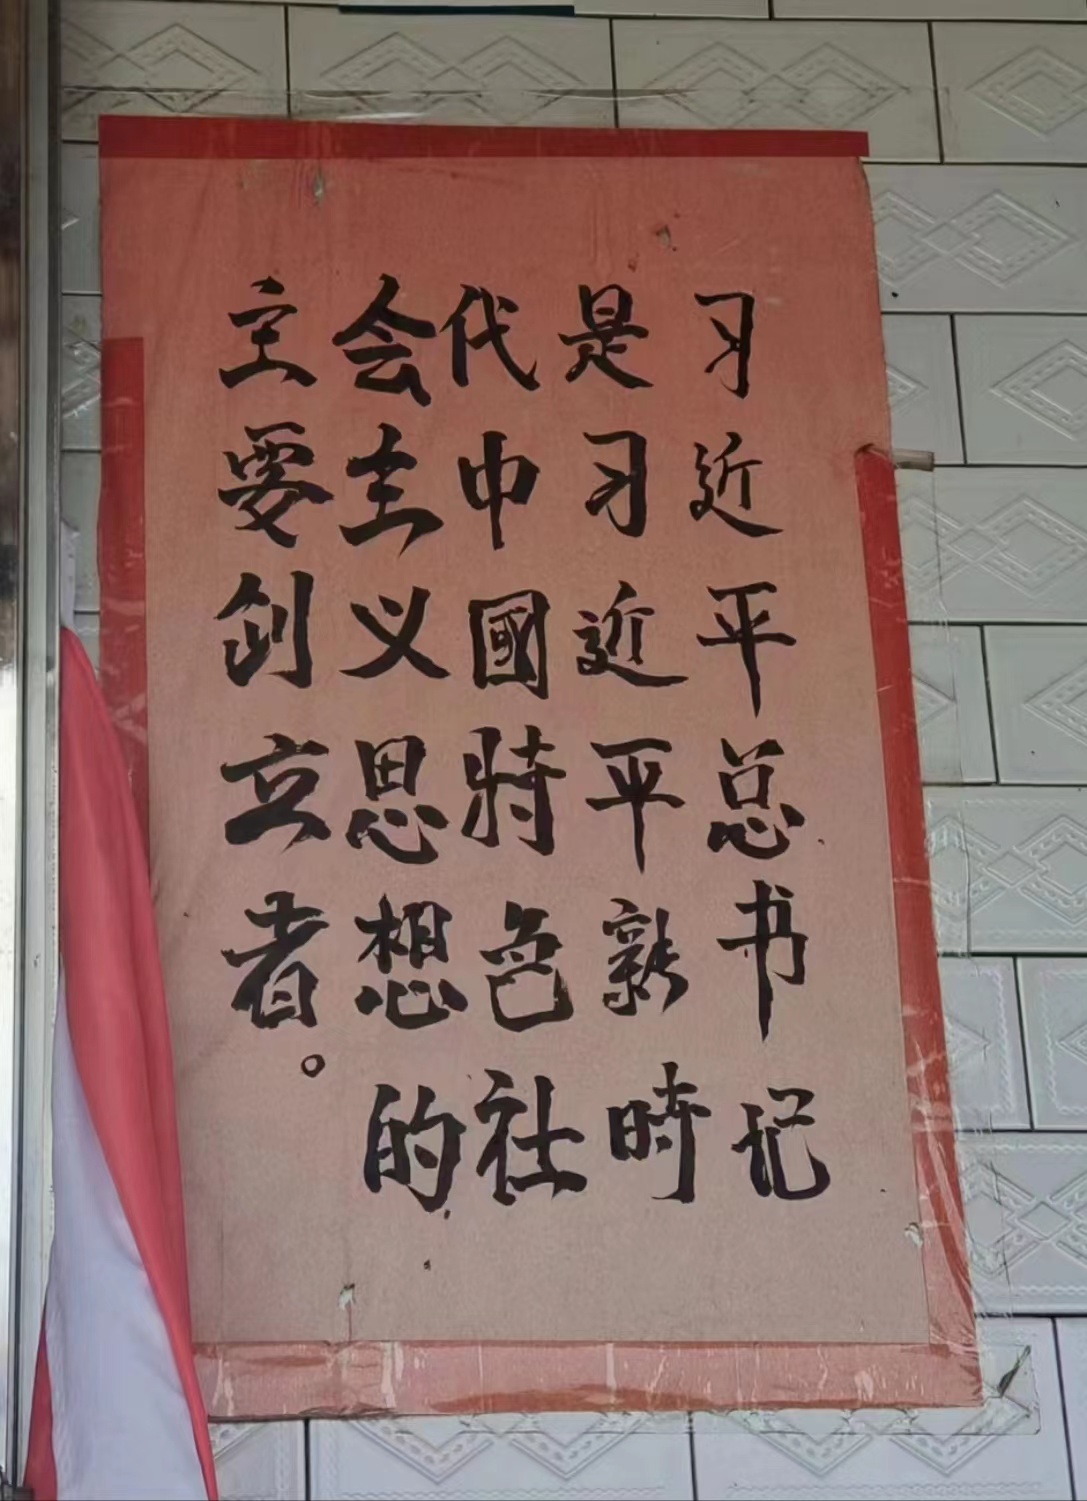 习近平总书记
是习近平新時
代中國特色社
会主义思想的
主要创立者。